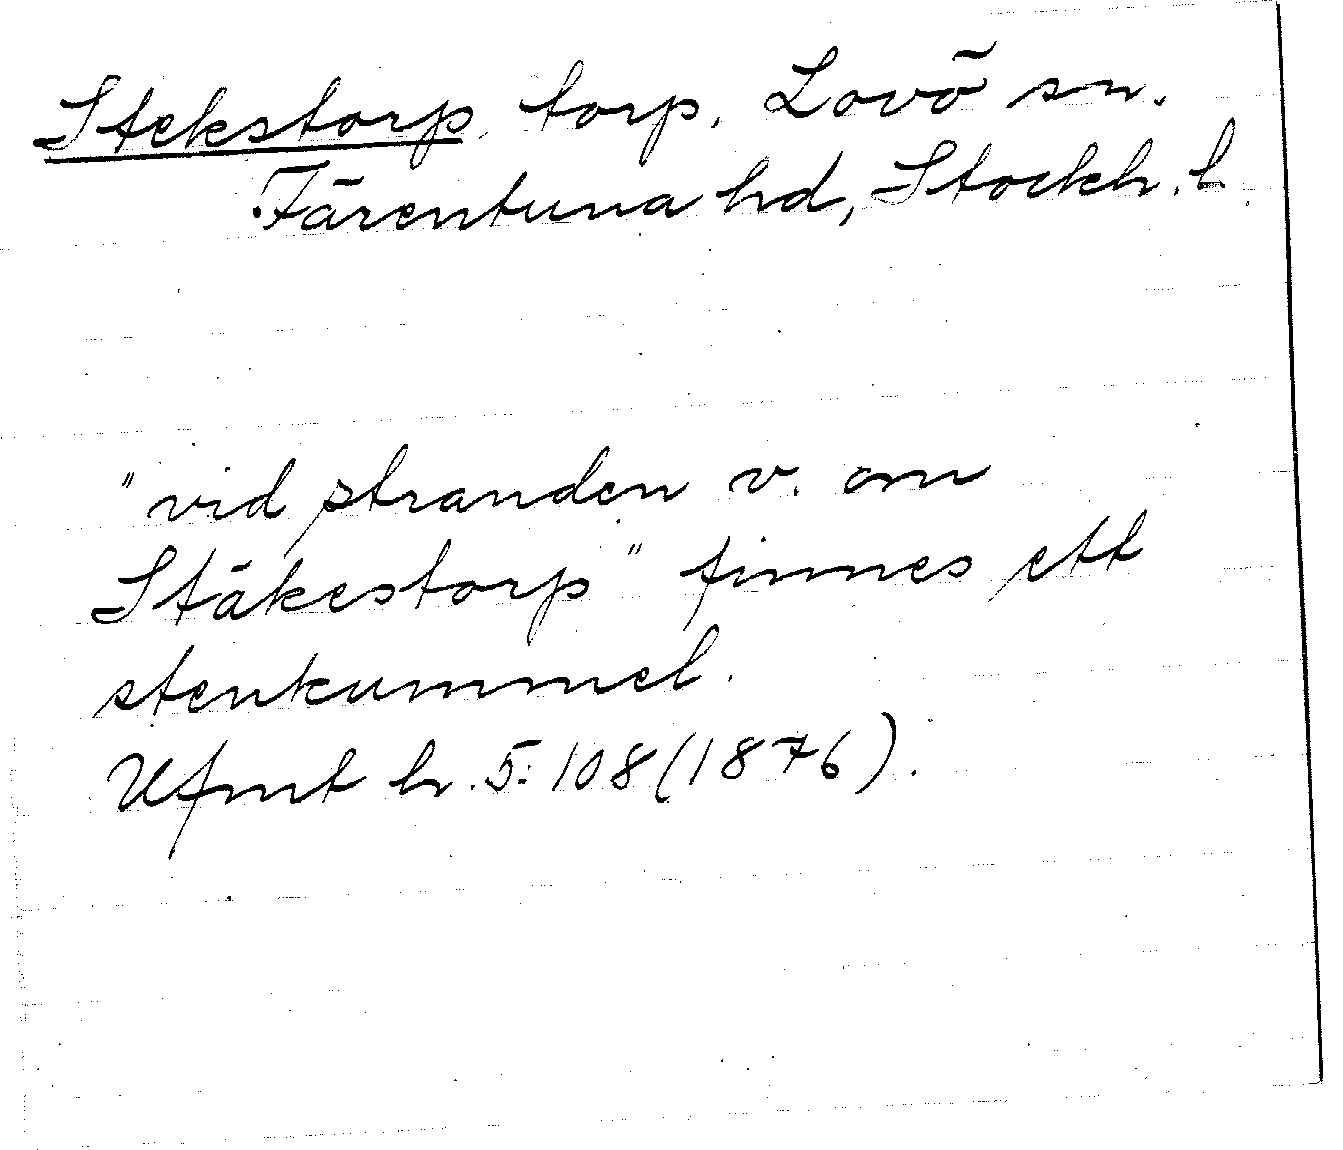 Stekstorp, torp, Lovö sn.
Färentuna hd, Stockh. l.
"vid stranden v. om
Stäkestorp" finnes ett
stenkummel.
Ufmt h. 5: 108 (1876).